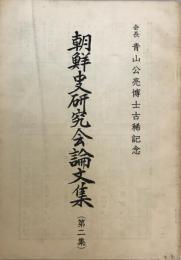 会長 青山公亮博士古稀記念
朝鮮史研究会論文集
(第二集)